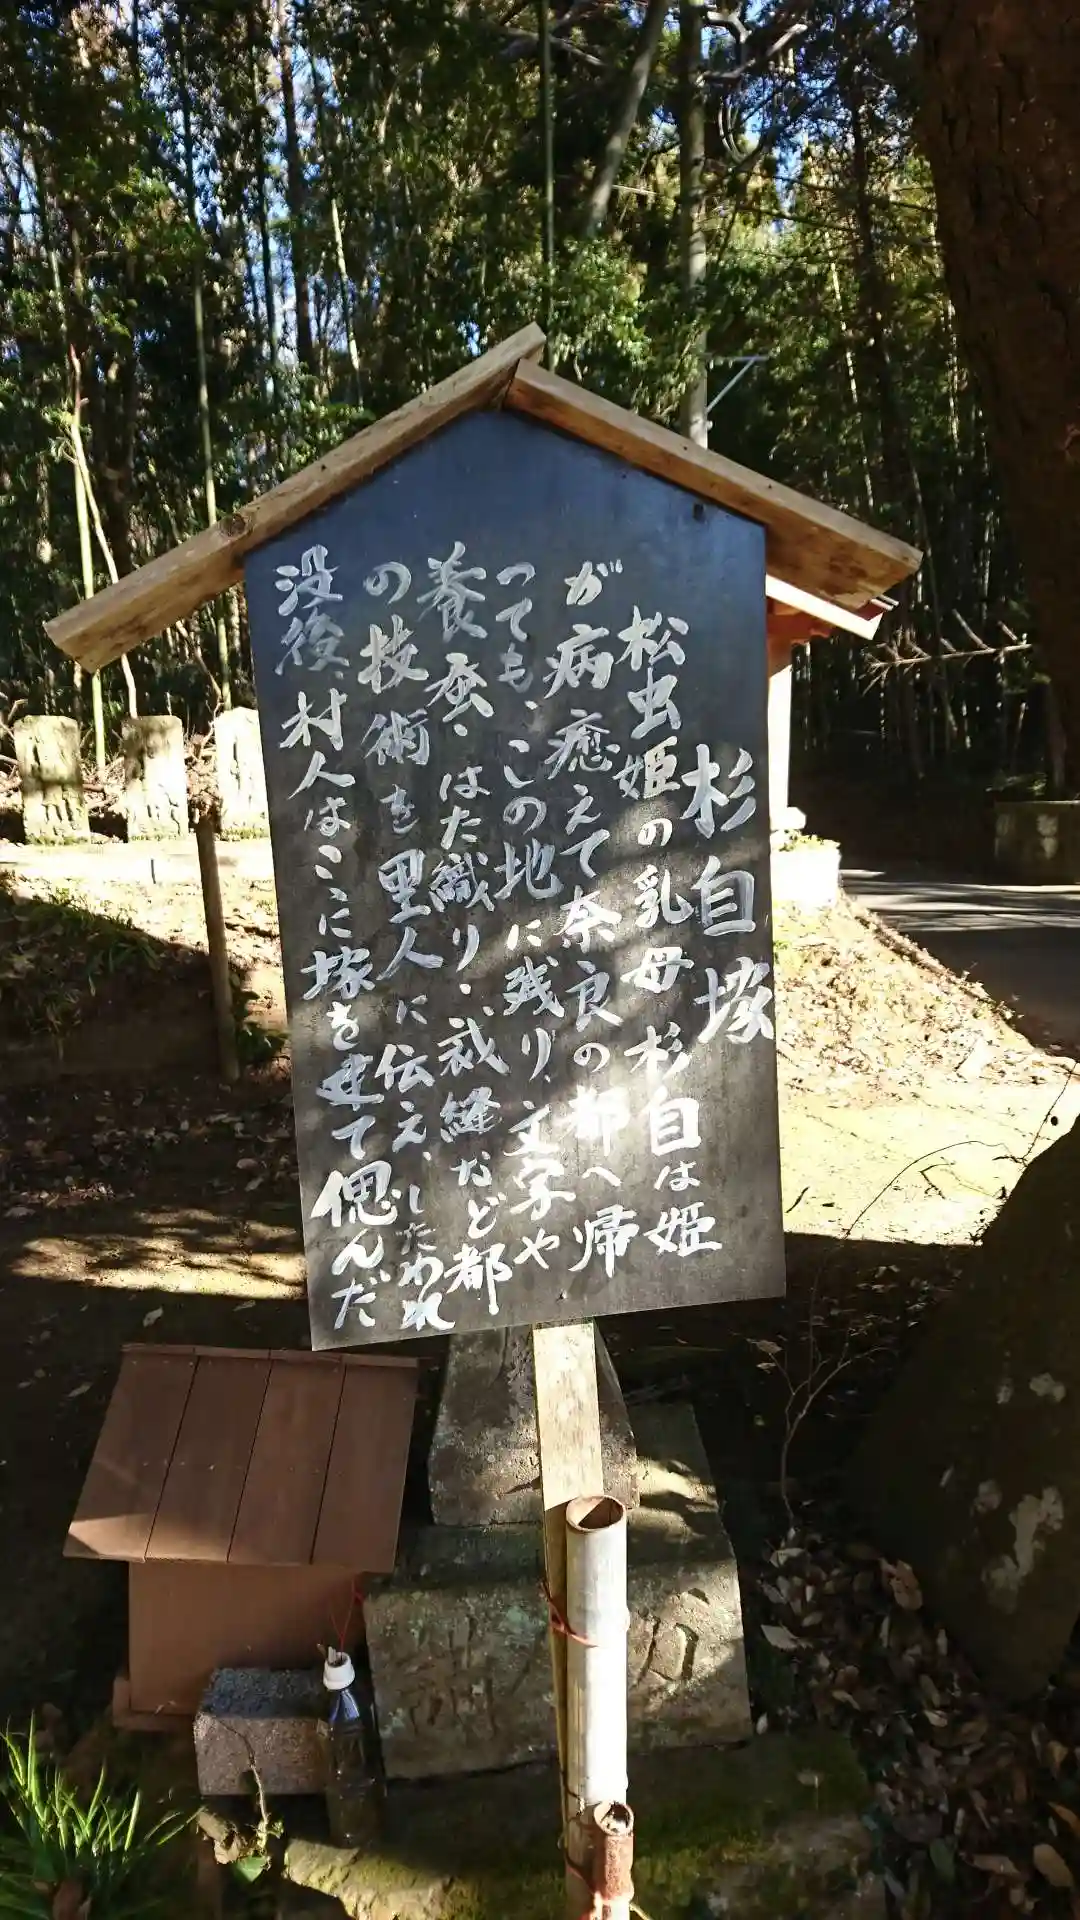 杉自塚
松虫姫の乳母杉自は姫
が病癒えて奈良の都へ帰
っても、この地に残り、文字や
養蚕・はた織り・裁縫など都
の技術を里人に伝え、したわれ
没後、村人はここに塚を建て偲んだ